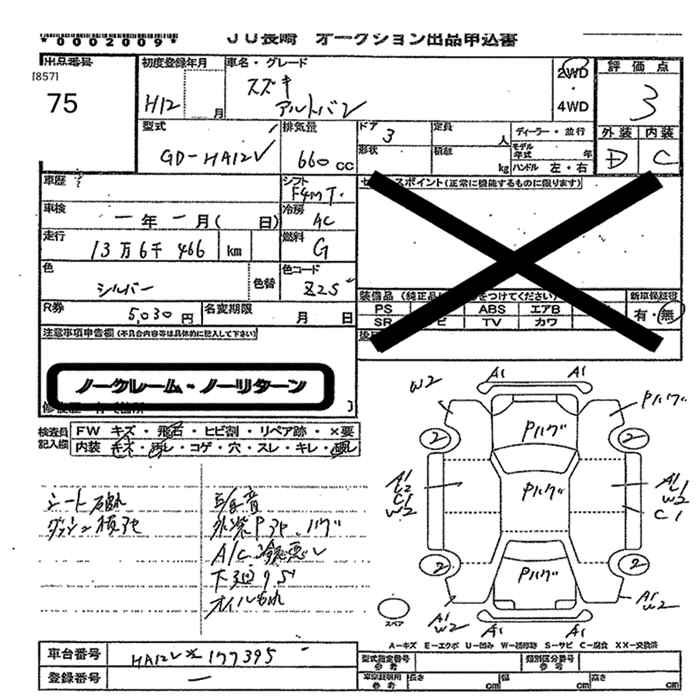 *0002009* JU長崎 オークション出品申込書
出品番号 [857] 75
初度登録年月 H12 月
車名・グレード スズキ アルトバン
2WD ・ 4WD
評価点 3
外装 D 内装 C
型式 GD-HA12V
排気量 660 CC
ドア 3 定員 人 ディーラー・並行
形状 積載 kg モデル年式 年
ハンドル 左・右
車歴
シフト F4MT
セールスポイント (正常に機能するものに限ります)
車検 一年一月( 日)
冷房 AC
走行 13万6千466 km
燃料 G
色 シルバー 色替
色コード Z2S
R券 5,030円 名変期限 月 日
装備品 (純正品に
をつけてください)
新車保証書 有・無
PS ABS エアB
SR TV カワ
注意事項申告欄 (不具合内容等は具体的に記入して下さい)
ノークレーム・ノーリターン
検査員記入欄
FW キズ・飛石・ヒビ割・リペア跡・×要
内装 キズ・汚レ・コゲ・穴・スレ・キレ・破レ
シート破れ
異音
A/C冷え悪い
下廻りサビ
オイルもれ
W2 A1 A1 Pハゲ
2 Pハゲ 2
A1 Pハゲ A1
C1 W2
W2 C1
2 Pハゲ 2
A1 W2 A1 A1 A1 W2
スペア
A-キズ E-エクボ U-凹み W-補修跡 S-サビ C-腐食 XX-交換済
車台番号 HA12V※177395
登録番号 一
型式指定番号 参考 類別区分番号 参考
車庫証明用 参考 長さ cm 幅 cm 高さ cm